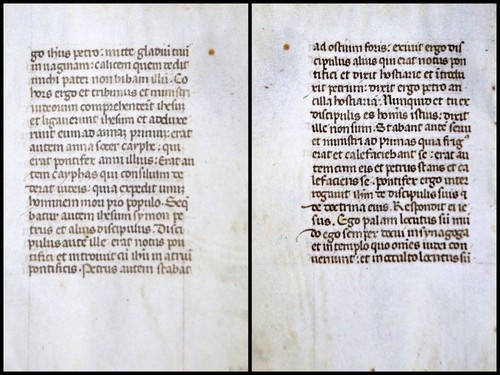 go ihūs petro: mitte gladiū tuū
in vaginam: calicem quem dedit
michi pater non bibam illū. Co
hors ergo et tribunus et ministri
iudeorum comprehenderūt ihesum
et ligaverunt ihesum et adduxe
runt eum ad annā primū: erat
autem anna socer cayphe: qui
erat pontifex anni illius: Erat au
tem cayphas qui consilium de
derat iudeis: quia expedit unum
hominem mori pro populo. Seq̄
batur autem ihesum symon pe
trus et alius discipulus. Disci
pulus autē ille erat notus pon
tifici et introivit cū ihū in atriū
pontificis. Petrus autem stabat
ad ostium foris: exivit ergo dis
cipulus alius qui erat notus pon
tifici et dixit hostiarie et ītrodu
xit petrum: dixit ergo petro an
cilla hostiaria. Nunquid et tu ex
discipulis es hominis istius: dixit
ille non sum. Stabant autē servi
et ministri ad prunas quia frig⁹
erat et calefaciebant se: erat au
tem cum eis et petrus stans et ca
lefaciens se. pontifex ergo inter
rogavit ihm̄ de discipulis suis ⁊
de doctrina eius. Respondit ei ie
sus. Ego palam locutus sū mū
do ego semper docui in synagoga
et in templo quo om̄es iudei con
veniunt: et in occulto locutus sū